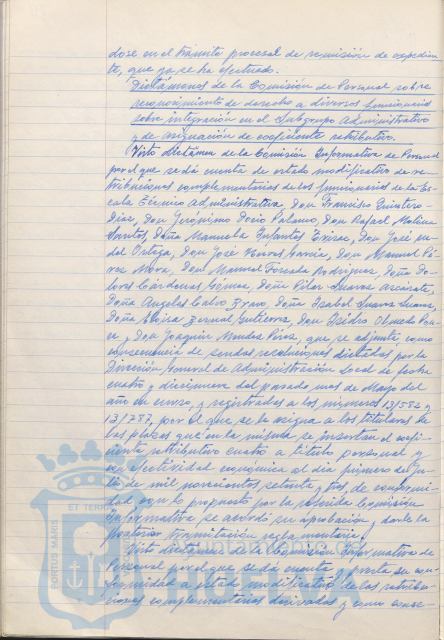 dose en el trámite procesal de remisión de expedien-
te, que ya se ha efectuado.
Dictámenes de la Comisión de Personal sobre
reconocimiento de derecho a diversos funcionarios
sobre integración en el Subgrupo Administrativo
y de asignación de coeficiente retributivo.
Visto dictámen de la Comisión Informativa de Personal
por el que se dá cuenta de estado modificativo de re-
tribuciones complementarias de los funcionarios de la Es-
cala Técnico Administrativa, Don Francisco Quintero
Diaz, Don Gerónimo Docio Palomo, Don Rafael Molina
Santos, Doña Manuela Infantes Don José
Ortega, Don José García, Don Manuel Pé-
rez Mora, Don Manuel Rodriguez, Doña Do-
lores Cárdenas Gómez, Doña Pilar Suarez
Doña Angeles Calvo Bravo, Doña Isabel Suarez
Doña Eloisa Bernal Gutierrez, Don Isidro Olmedo Pon-
ce, y Don Joaquin Mendez Pérez, que se adjunta, como
consecuencia de sendas resoluciones dictadas por la
Dirección General de Administración Local de fecha
cuatro y diecinueve del pasado mes de Mayo del
año en curso, y registradas a los números 13/582 y
13/787, por el que se le asigna a los titulares de
las plazas que en la misma se insertan el coefi-
ciente retributivo cuatro a título personal y
con efectividad económica al día primero de Ju-
lio de mil novecientos setenta y tres, de conformi-
dad con lo propuesto por la referida Comisión
Informativa se acordó su aprobación y darle la
posterior tramitación reglamentaria.
Visto dictamen de la Comisión Informativa de
Personal por el que se dá cuenta y presta su con-
formidad a estado modificativo de las retribu-
ciones complementarias derivadas y como conse-
PORTUS MARIS
ET TERR
HUELVA